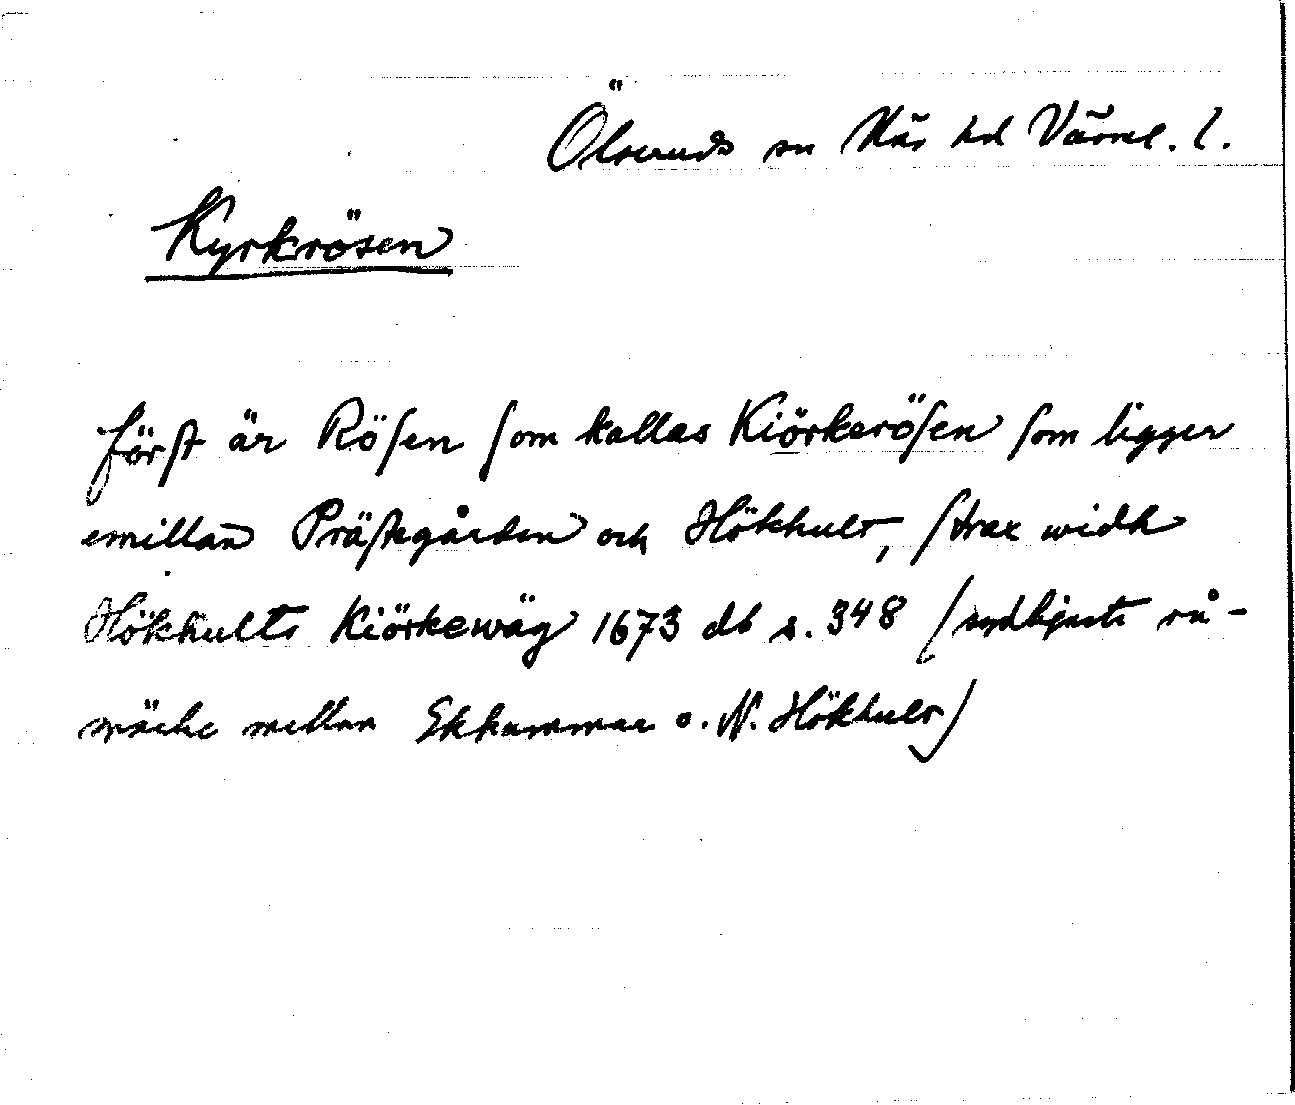 Ölseruds sn Näs hd Värml. l.
Kyrkrösen
först är Rösen som kallas Kiörkerösen som ligger
emillan Prästegården och Hökhult, strax widh
Hökhults Kiörkewäg 1673 db s. 348 /sydligaste rå-
märke mellan Ekhammar o. N. Hökhult/